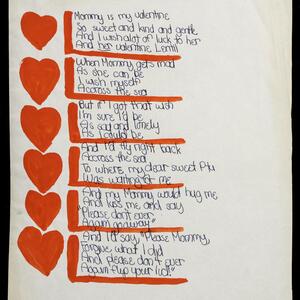 Mommy is my valentine
So sweet and kind and gentle
And I wish alot of luck to her
And her valentine Lentil
When Mommy gets mad
As she can be
I wish myself
Accross the sea
But if I got that wish
I'm sure I'd be
As sad and lonely
As I could be
And I'd fly right back
Accross the sea
To where my dear sweet
Was waiting for me
And my Mommy would hug me
And kiss me and say
"Please don't ever
Again go away"
And I'd say, "Please Mommy,
Forgive what I did
And please don't ever
Again flip your lid!"